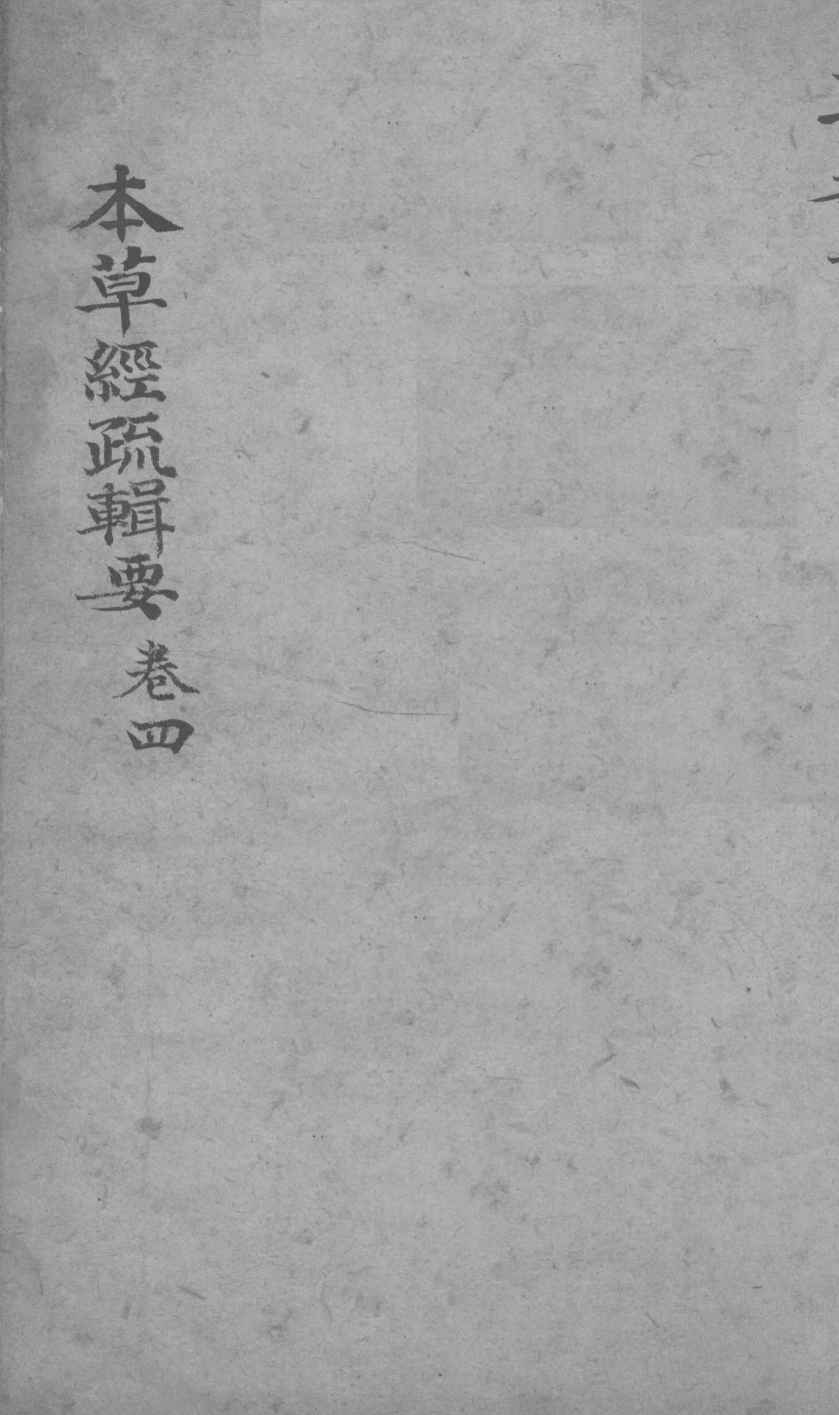 本草經疏輯要 卷四